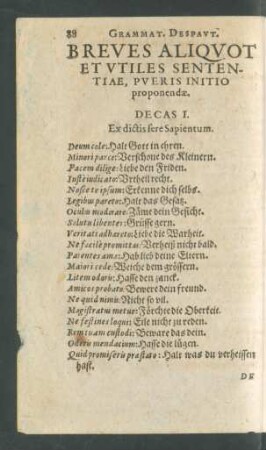 88 GRAMMAT. DESPAVT.
BREVES ALIQVOT
ET VTILES SENTEN-
TIAE, PVERIS INITIO
proponendæ.
DECAS I.
Ex dictis fere Sapientum.
Deum cole: Halt Gott in ehren.
Minori parce: Verschone des Kleinern.
Pacem dilige: Liebe den Friden.
Iuste iudicato: Vrtheil recht.
Nosce te ipsum: Erkenne dich selbs.
Legibus pareto: Halt das Gesatz.
Oculis moderare: Zäme dein Gesicht.
Saluta libenter: Grüsse gern.
Veritati adhæreto: Liebe die Warheit.
Ne facile promittas: Verheiß nicht bald.
Parentes ama: Hab lieb deine Eltern.
Maiori cede: Weiche dem grössern.
Litem oderis: Hasse den zanck.
Amicos probato: Bewere dein freund.
Ne quid nimis: Nicht so vil.
Magistratus metue: Förchte die Oberkeit.
Ne festines loqui: Eile nicht zu reden.
Rem tuam custodi: Beware das dein.
Oderis mendacium: Hasse die lügen.
Quid promiseris præstato: Halt was du verheissen
hast.
DE